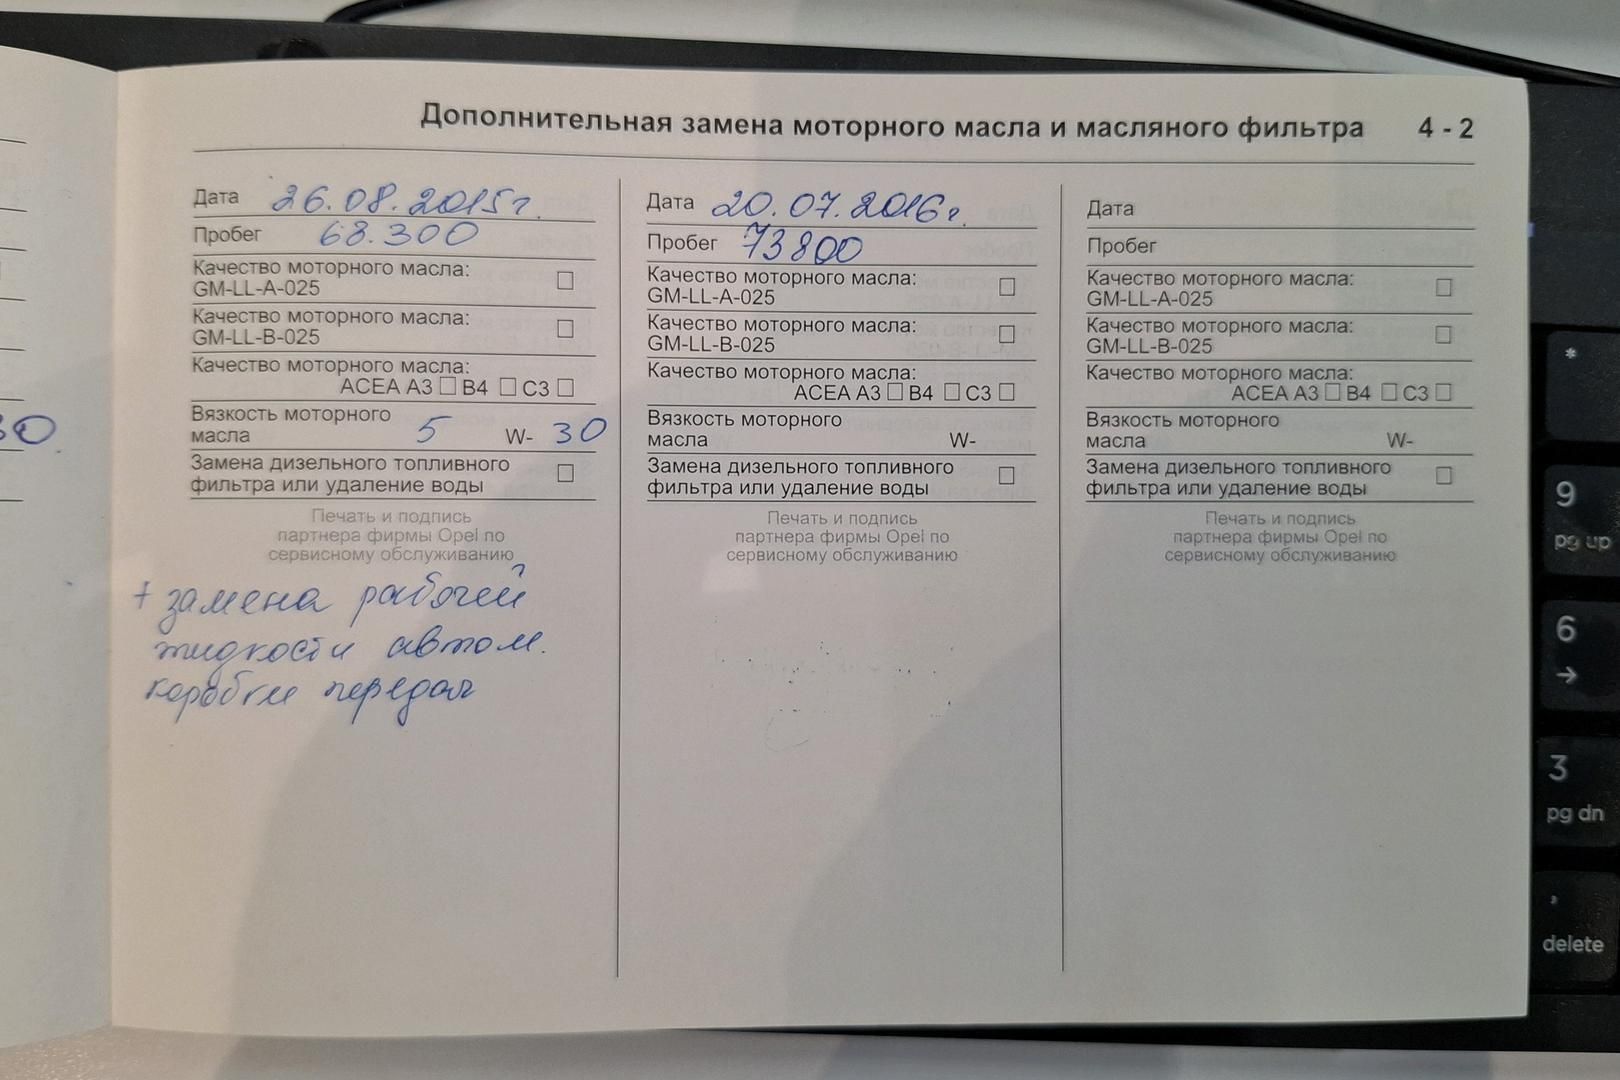 Дополнительная замена моторного масла и масляного фильтра 4 - 2
Дата 26.08.2015г.
Пробег 68.300
Качество моторного масла:
GM-LL-A-025
Качество моторного масла:
GM-LL-B-025
Качество моторного масла:
ACEA A3 □ B4 □ C3 □
Вязкость моторного
масла 5 W- 30
Замена дизельного топливного
фильтра или удаление воды
Печать и подпись
партнера фирмы Opel по
сервисному обслуживанию
+ замена рабочей
жидкости автом.
коробки передач
Дата 20.07.2016г.
Пробег 73800
Качество моторного масла:
GM-LL-A-025
Качество моторного масла:
GM-LL-B-025
Качество моторного масла:
ACEA A3 □ B4 □ C3 □
Вязкость моторного
масла W-
Замена дизельного топливного
фильтра или удаление воды
Печать и подпись
партнера фирмы Opel по
сервисному обслуживанию
Дата
Пробег
Качество моторного масла:
GM-LL-A-025
Качество моторного масла:
GM-LL-B-025
Качество моторного масла:
ACEA A3 □ B4 □ C3 □
Вязкость моторного
масла W-
Замена дизельного топливного
фильтра или удаление воды
Печать и подпись
партнера фирмы Opel по
сервисному обслуживанию
30
*
9
pg up
6
→
3
pg dn
,
delete